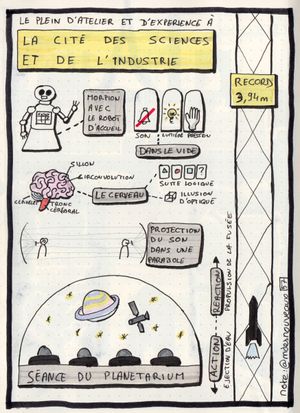 LE PLEIN D'ATELIER ET D'EXPERIENCE À
LA CITÉ DES SCIENCES
ET DE L'INDUSTRIE
RECORD
3,94m
MORTION
AVEC
LE ROBOT
D'ACCUEIL
SON
LUMIÈRE
PRESSION
DANS LE VIDE
SILLON
CIRCONVOLUTION
CERVELET
TRONC
CÉRÉBRAL
LE CERVEAU
?
SUITE LOGIQUE
ILLUSION
D'OPTIQUE
PROJECTION
DU SON
DANS UNE
PARABOLE
ACTION
EJECTION D'EAU
REACTION
PROPULSION DE LA FUSÉE
SÉANCE DU PLANETARIUM